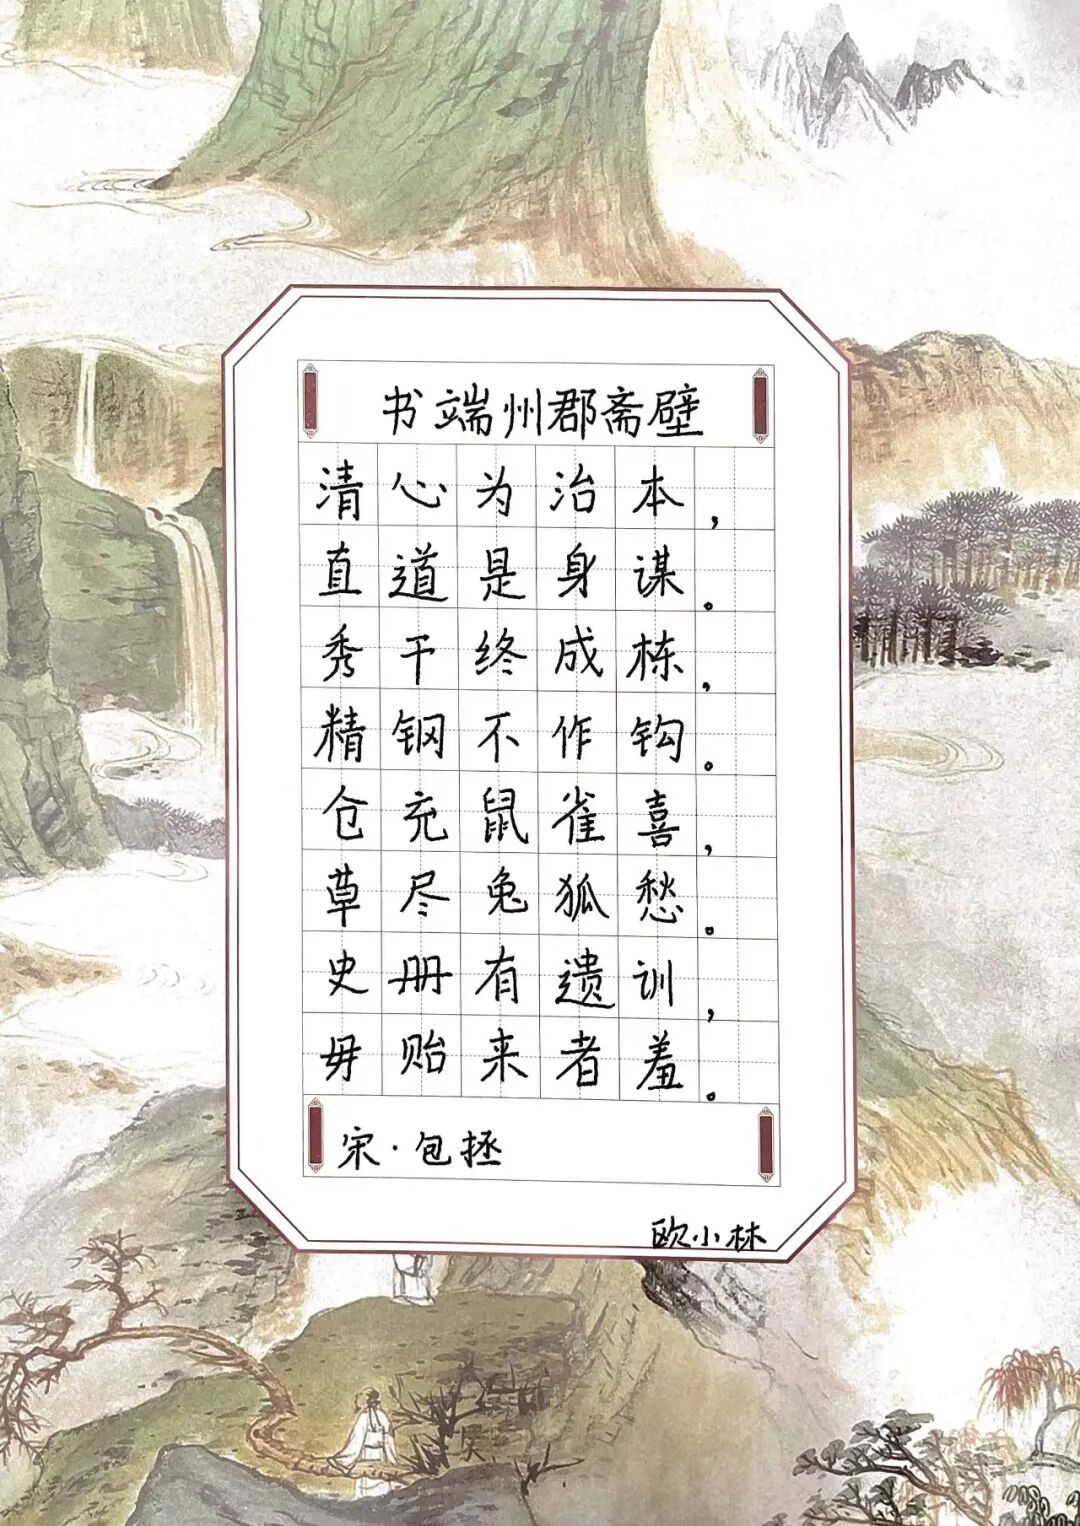 书端州郡斋壁
清心为治本，
直道是身谋。
秀干终成栋，
精钢不作钩。
仓充鼠雀喜，
草尽兔狐愁。
史册有遗训，
毋贻来者羞。
宋·包拯
欧小林